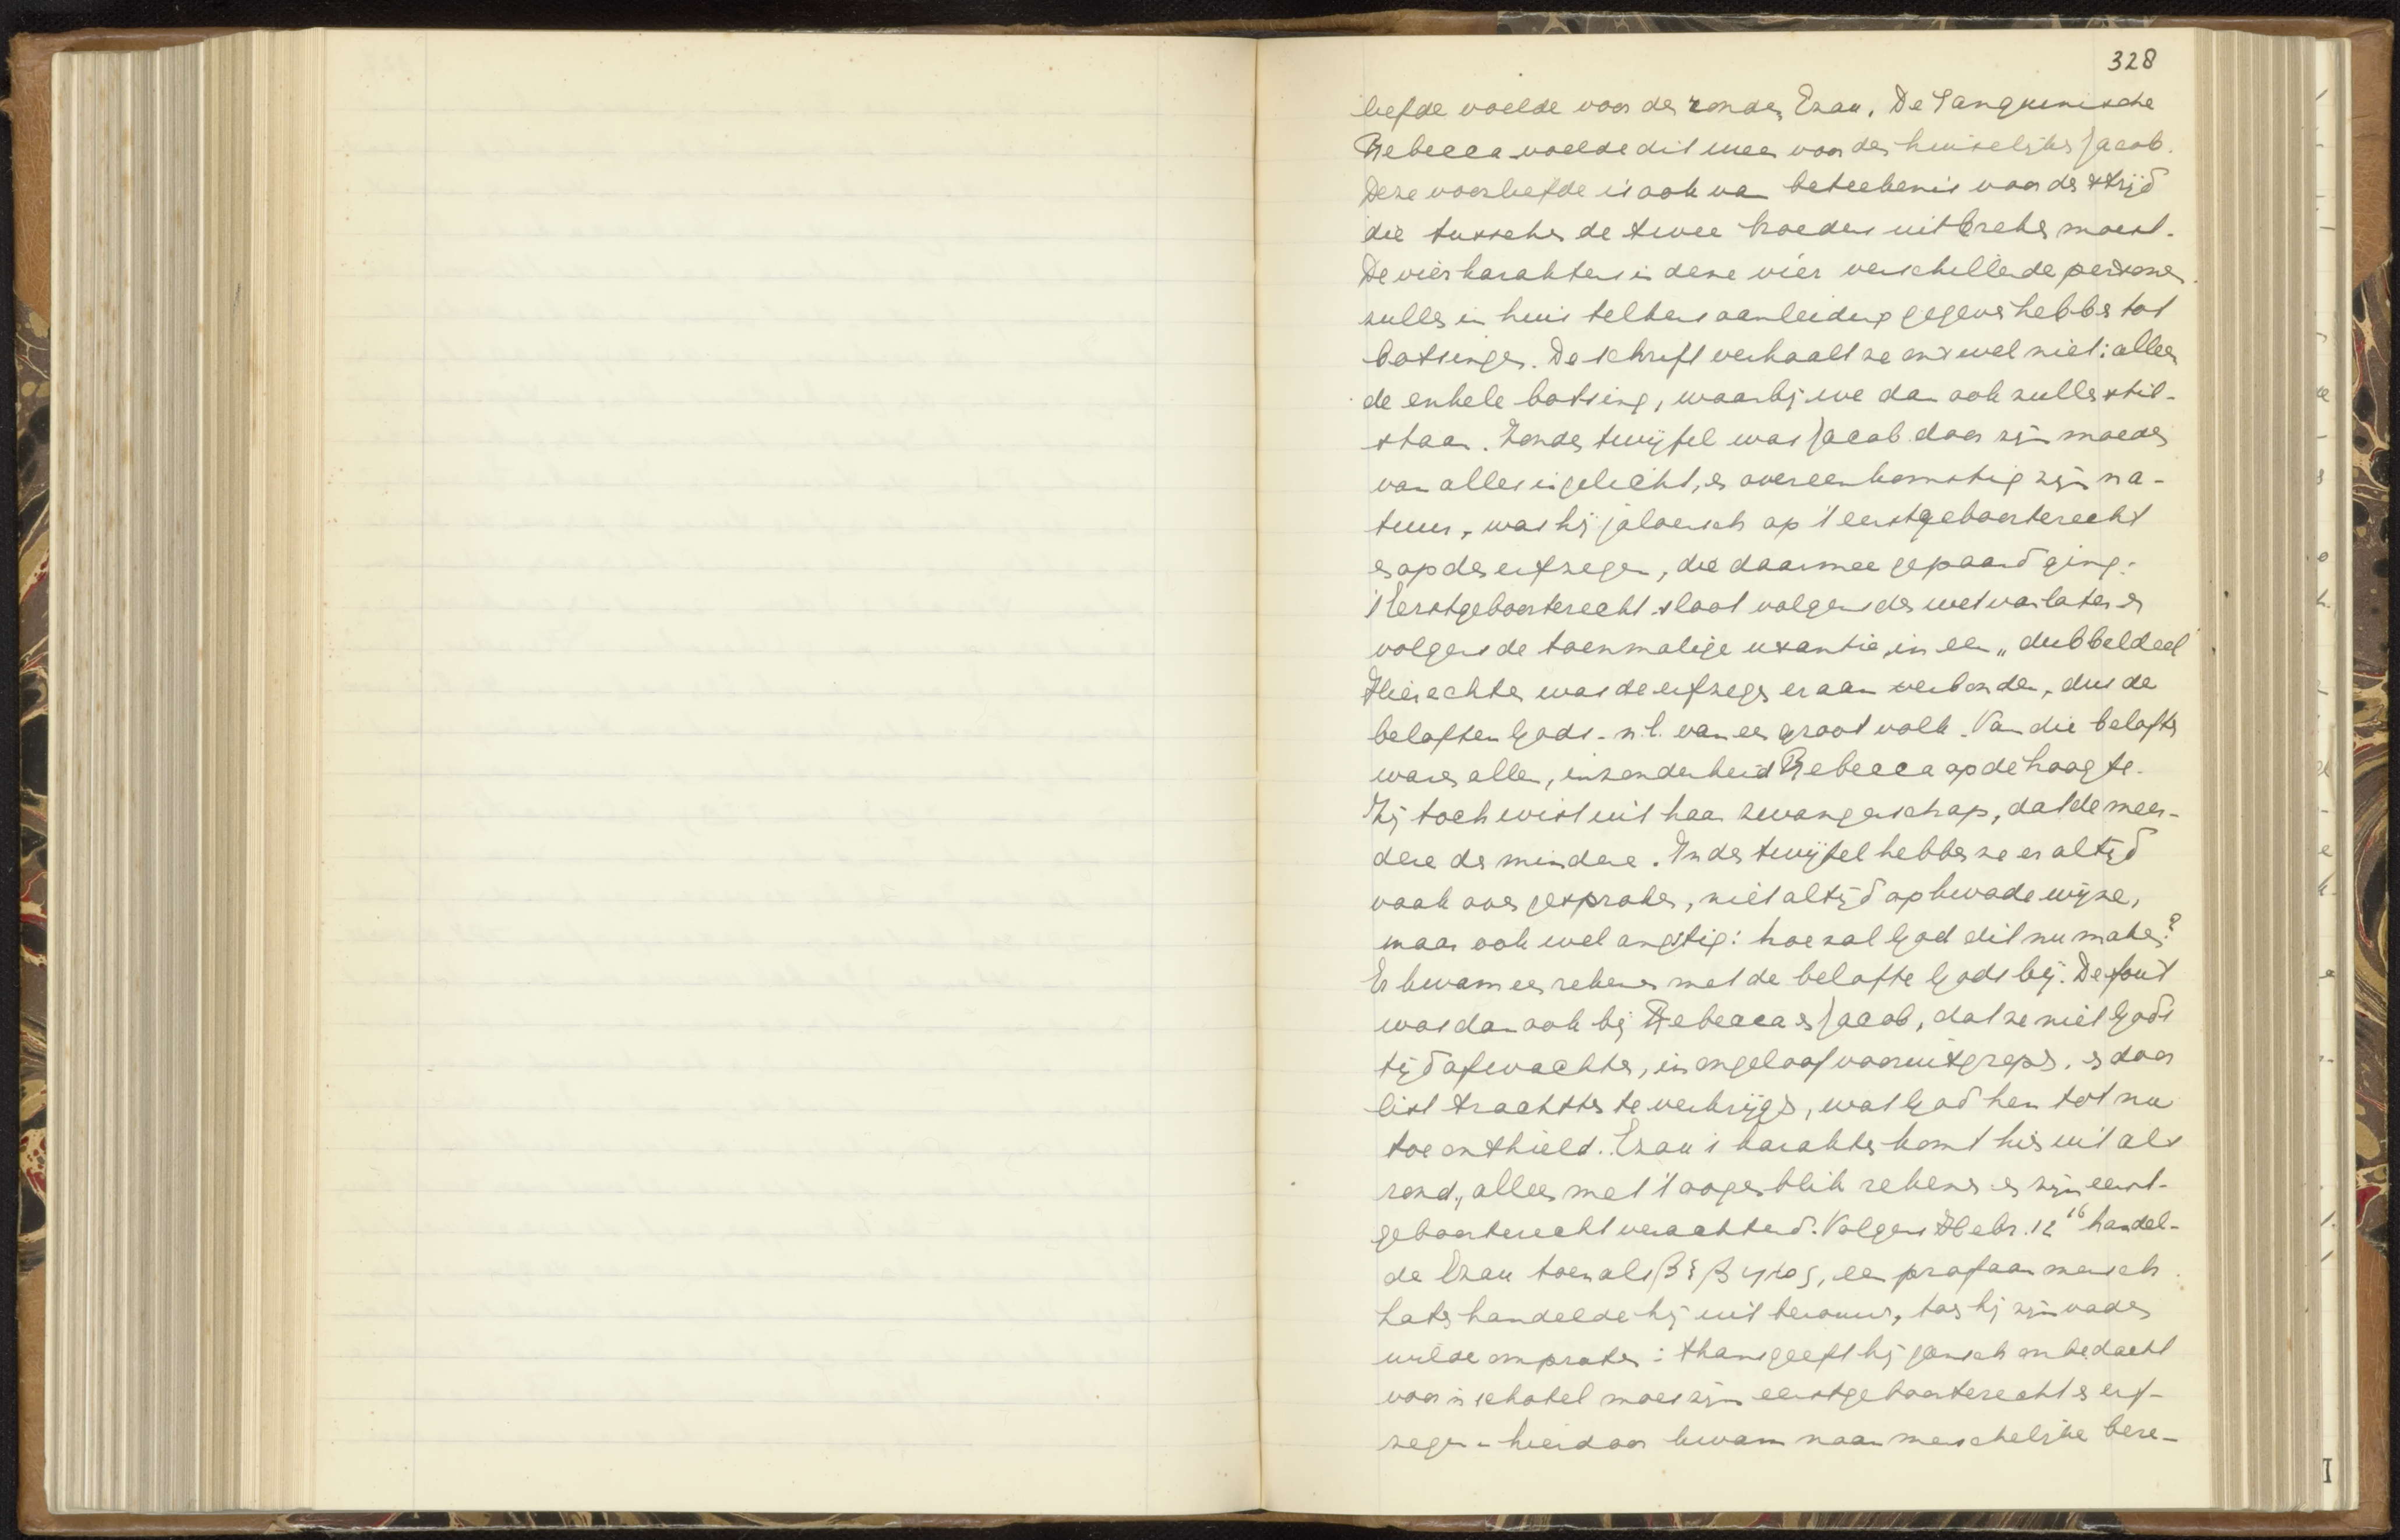 328
liefde voelde voor den ronden Ezau. De Sanguinische
Rebecca voelde dit meer voor den huiselijken Jacob.
Deze voorliefde is ook van beteekenis voor den strijd
die tusschen de twee broeders uitbreken moest.
De vier karakters in deze vier verschillende personen
zullen in huis telkens aanleiding gegeven hebben tot
botsingen. De schrift verhaalt ze ons wel niet: alleen
de enkele botsing, waarbij we dan ook zullen stil-
staan. Zonder twijfel was Jacob door zijn moeder
van alles ingelicht, en overeenkomstig zijn na-
tuur, was hij jaloersch op 't eerstgeboorterecht
en op den erfzegen, die daarmee gepaard ging.
't Eerstgeboorterecht sloot volgens de wet van later en
volgens de toenmalige usantie, in een „dubbeldeel"
Hierachter was de erfzegen eraan verbonden, dus de
beloften Gods - n.l. van een groot volk. Van die beloften
waren allen, inzonderheid Rebecca op de hoogte.
Zij toch wist uit haar zwangerschap, dat de meer-
dere de mindere. In den twijfel hebben ze er altijd
vaak over gesproken, niet altijd op kwade wijze,
maar ook wel angstig: hoe zal God dit nu maken?
Er kwam een rekenen met de belofte Gods bij. De fout
was dan ook bij Rebecca en Jacob, dat ze niet Gods
tijd afwachten, in ongeloof vooruitgrepen, en door
list trachtten te verkrijgen, wat God hen tot nu
toe onthield. Ezau's karakter komt hier uit als
rond, alleen met 't oogenblik rekenen en zijn eerst-
geboorterecht verachtend. Volgens Hebr. 12 16 handel-
de Ezau toen als βέβηλος, een profaan mensch.
Later handelde hij uit berouw, toen hij zijn vader
wilde ompraten: thans geeft hij gansch onbedacht
voor 'n schotel moes zijn eerstgeboorterecht en erf-
zegen - hierdoor kwam naar menschelijke bere-